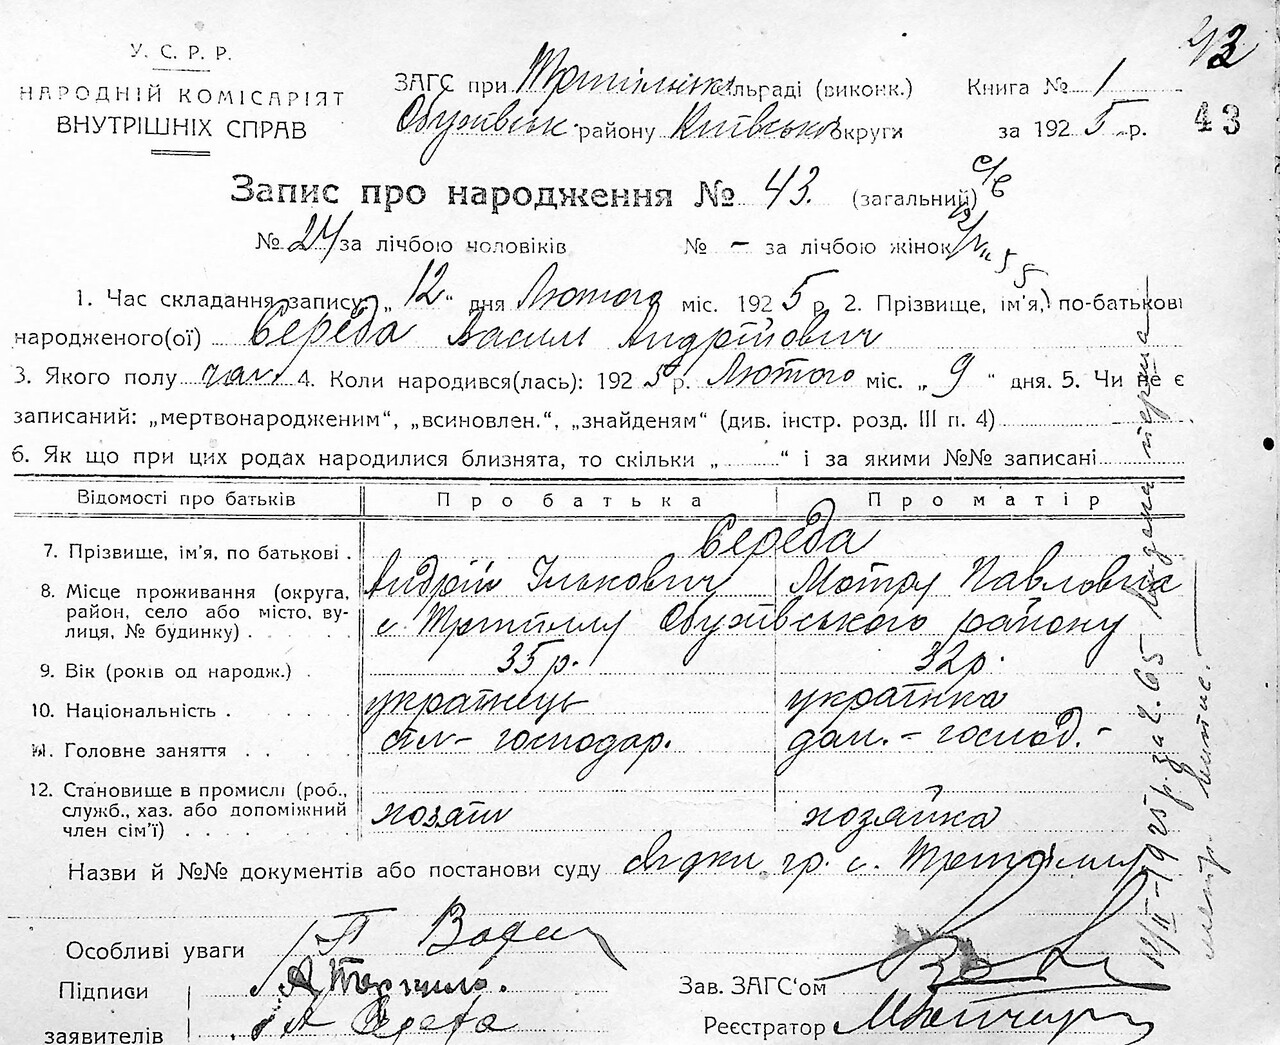 У. С. Р. Р.
НАРОДНІЙ КОМІСАРІЯТ
ВНУТРІШНІХ СПРАВ
ЗАГС при Трипільськ льраді (виконк.)
Обухівськ. району Київської округи
Книга № 1
за 1925 р.
43
43
Запис про народження № 43. (загальний)
№ 24 за лічбою чоловіків № – за лічбою жінок
1. Час складання запису: „12“ дня Лютого міс. 1925 р. 2. Прізвище, ім'я, по-батькові
народженого(ої) Середа Василь Андрійович
3. Якого полу чол. 4. Коли народився(лась): 1925 р. Лютого міс. „9“ дня. 5. Чи не є
записаний: „мертвонародженим“, „всиновлен.“, „знайденям“ (див. інстр. розд. III п. 4)
6. Як що при цих родах народилися близнята, то скільки „ “ і за якими №№ записані
Відомості про батьків Про батька Про матір
7. Прізвище, ім'я, по батькові . Середа
Андрій Ількович Мотря Павловна
8. Місце проживання (округа,
район, село або місто, ву-
лиця, № будинку) . с Трипілля Обухівського району
9. Вік (років од народж.) . 35 р. 32 р.
10. Національність . українець українка
11. Головне заняття . сіл – господар. дом. – господ. –
12. Становище в промислі (роб.,
служб., хаз. або допоміжний
член сім'ї) . хозяїн хозяйка
Назви й №№ документів або постанови суду гр. с. Трипілля
Особливі уваги
Підписи
заявителів А Середа
Зав. ЗАГС'ом
Реєстратор
12/II–1925 р. за 2. 65 Видана перша
витяг.